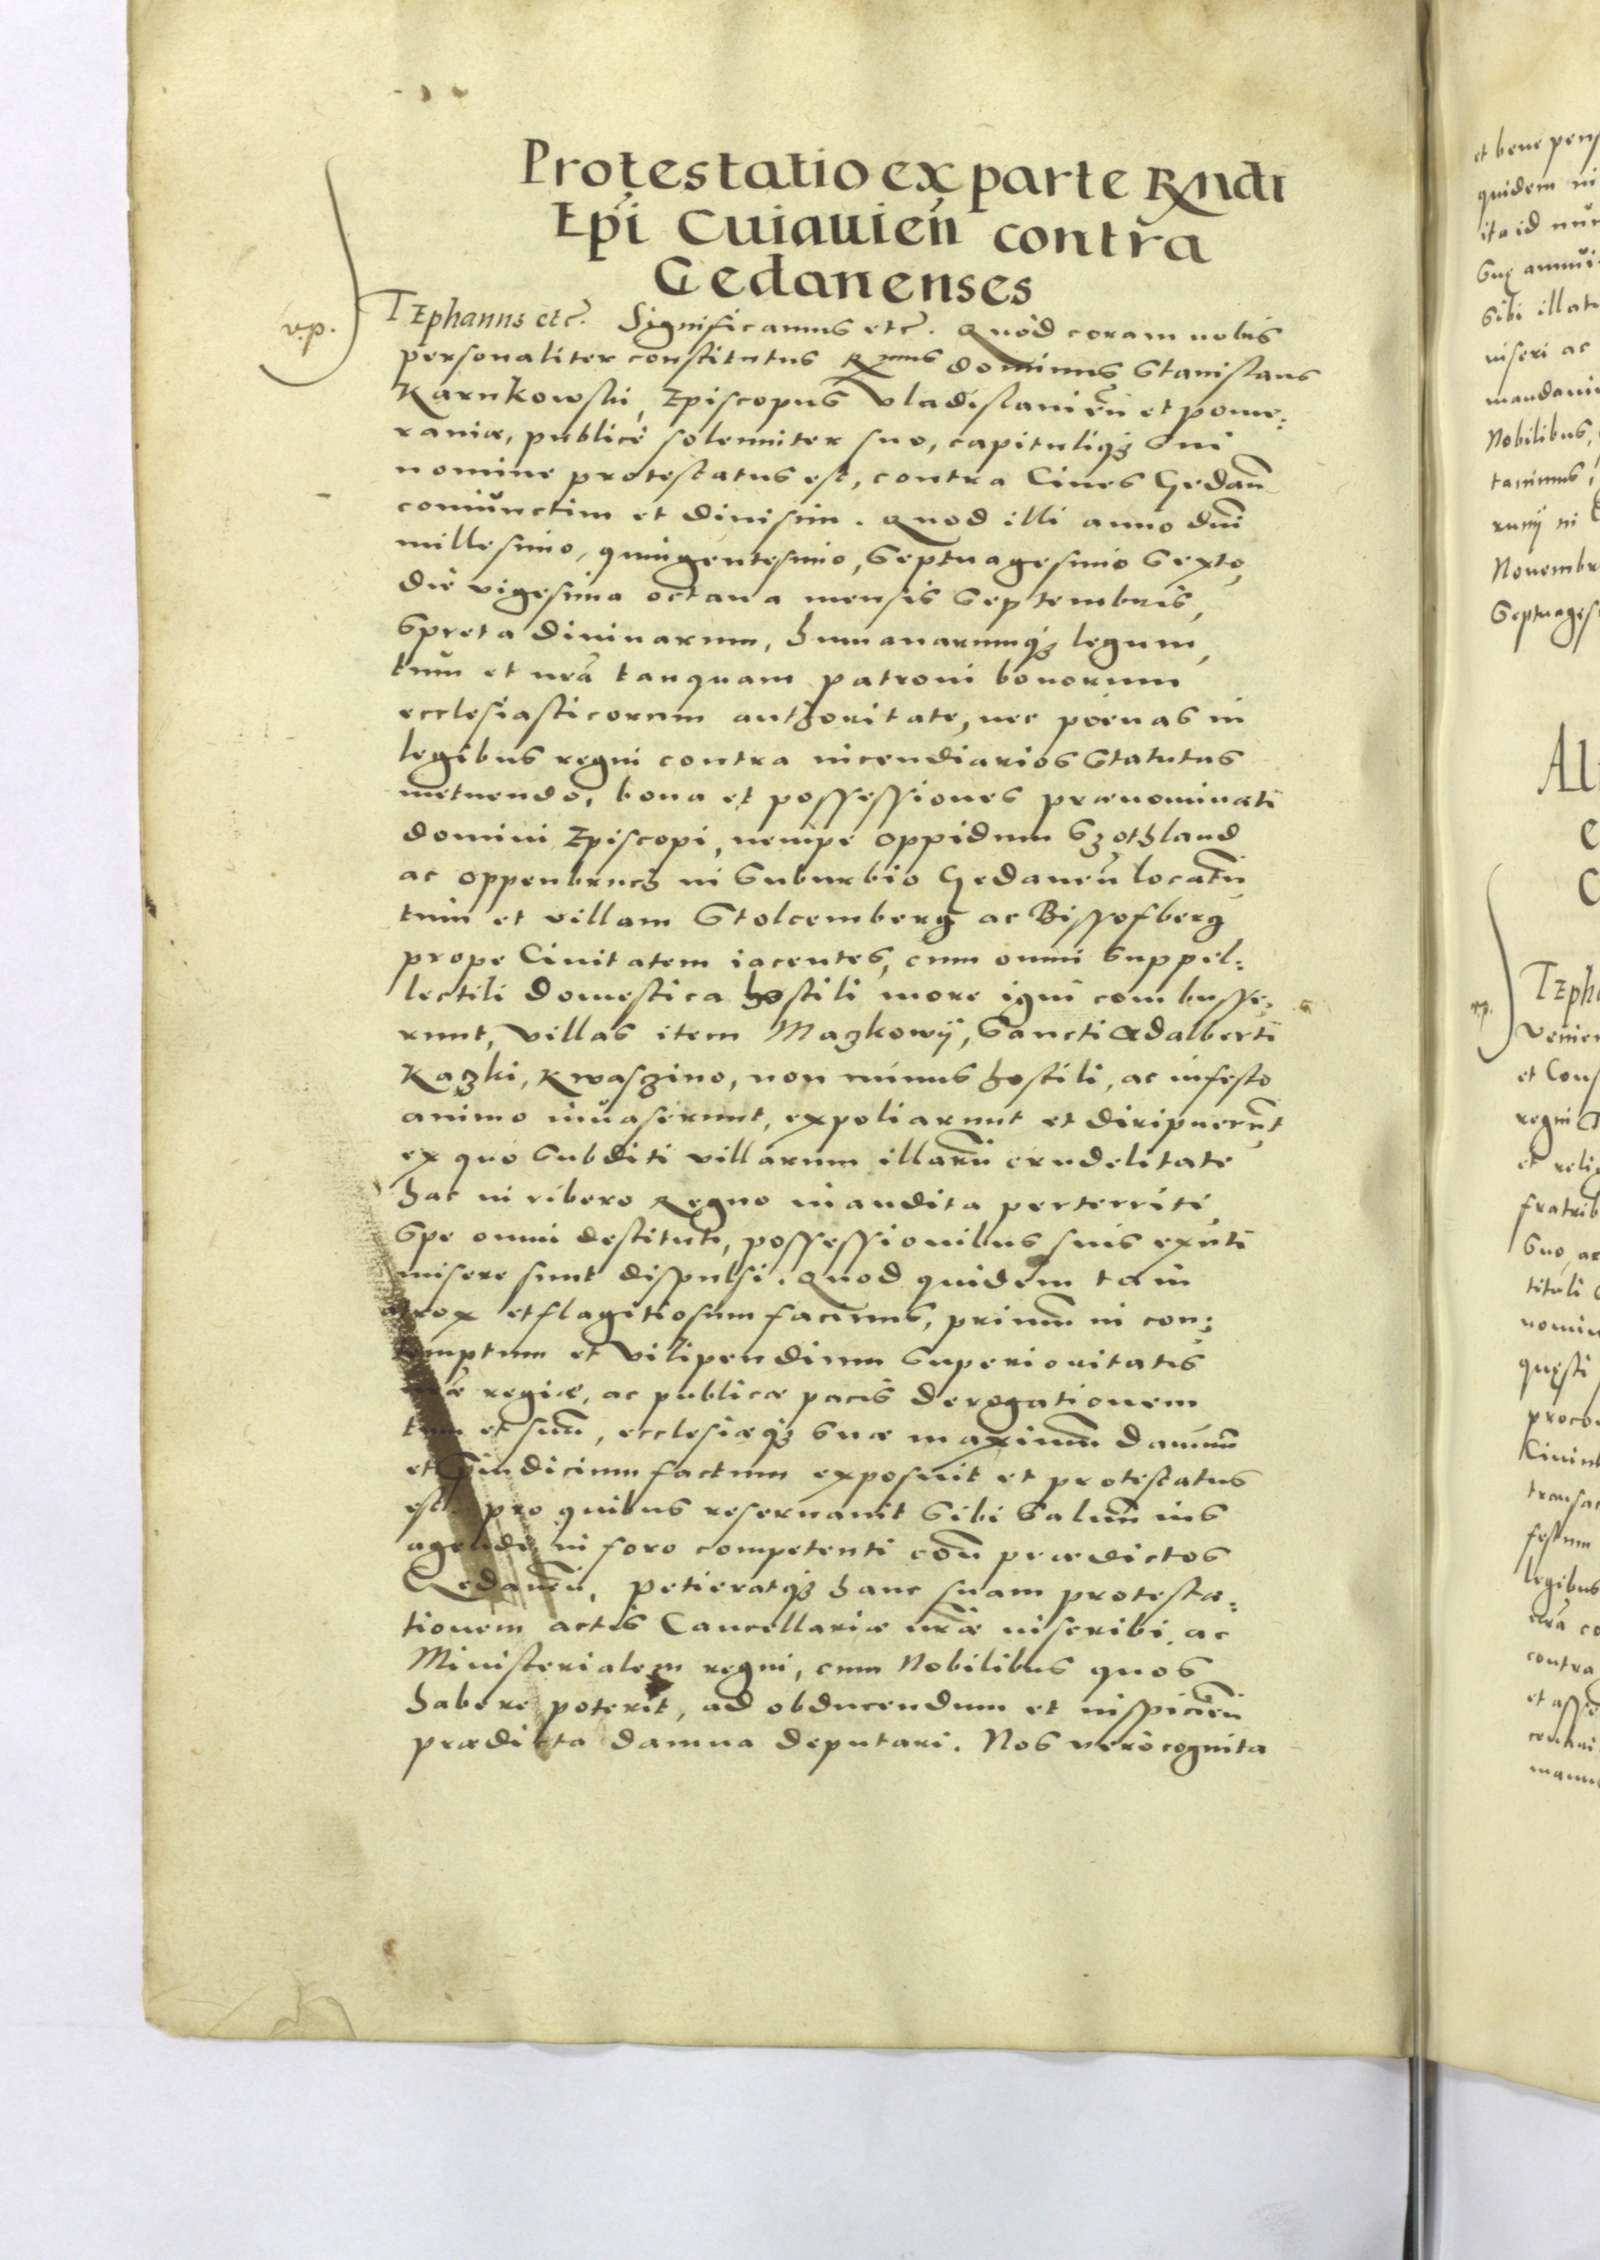 Protestatio ex parte Rndi
Epi Cuiauien contra
Gedanenses
v.p.
STEphanus etc. Significamus etc. Quod coram nobis
personaliter constitutus Rmus dominus Stanislaus
Karnkowski, Episcopus Vladislauien et pome:
raniæ, publice solenniter suo, capituliq3 sui
nomine protestatus est, contra Ciues Gedan
coniunctim et diuisim. Quod illi anno dni
millesimo, quingentesimo, Septuagesimo Sexto,
die vigesima octaua mensis Septembris,
Spreta diuinarum, humanarumq3 legum,
tum et nra tanquam patroni bonorum
ecclesiasticorum authoritate, nec poenas in
legibus regni contra incendiarios Statutas
metuendo, bona et possessiones prænominati
domini Episcopi, nempe oppidum Szothland
ac oppenbruch in Suburbio Gedanen locatu,
tum et villam Stolcemberg ac Bissofberg
prope Ciuitatem iacentes, cum omni Suppel:
lectili domestica hostili more igni combusse:
runt, Villas item Maczkowy, Sancti Adalberti
Kaczki, Kwaszino, non minus hostili, ac infesto
animo inuaserunt, expoliarunt et diripuerut,
ex quo Subditi villarum illaru crudelitate
hac in libero Regno inaudita perterriti,
Spe omni destituti, possessionibus suis exuti
misere sunt dispulsi. Quod quidem tam
atrox et flagitiosum facinus, primu in con:
temptum et Vilipendium Superioritatis
nræ regiæ, ac publicæ pacis derogationem
tum et suu, ecclesiæq3 suæ maximu damnu
et præiudicium factum exposuit et protestatus
est. pro quibus reseruauit Sibi Saluu ius
agendi in foro competenti cou prædictos
Gedanen, petieratq3 hanc suam protesta:
tionem actis Cancellariæ nræ inscribi, ac
Ministerialem regni, cum Nobilibus quos
habere poterit, ad obducendum et inspicien
prædicta damna deputari. Nos vero cognita
et bene pens
quidem in
ita id nun
Suæ annui
Sibi illat
inseri ac
mandaui
Nobilibus,
Nouembr
Septuages
STEpha
et Cons
regni
et reli
fratrib
Suo, ac
tituli
nomin
quæsti
transac
festum
legibus
contra